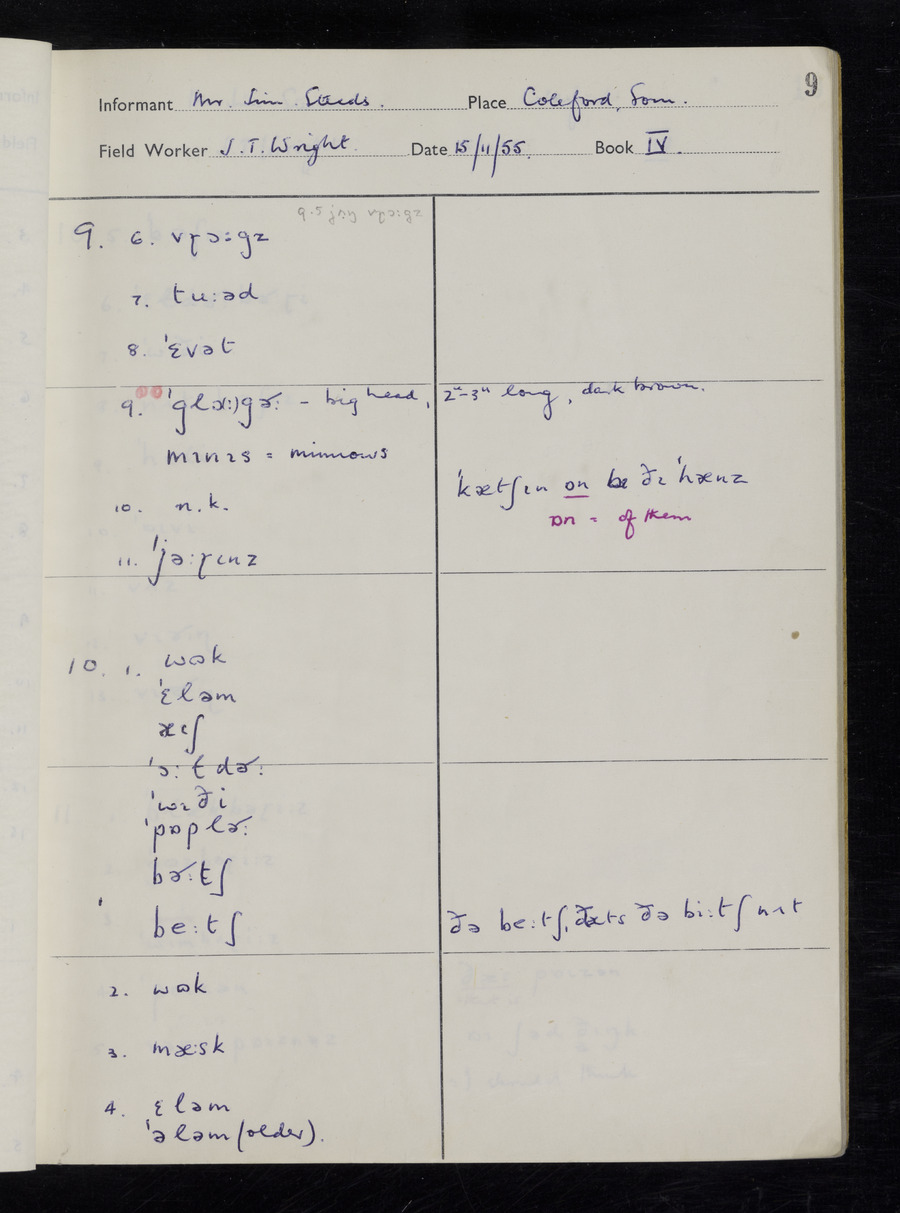 9
Informant Mr. Jim Steeds. Place Coleford, Som.
Field Worker J.T. Wright Date 15/11/55. Book IV.
9. 6. vɽɔːgz
7. tuːəd
8. ˈɛvət
9. - big head, 2"-3" long, dark brown.
mɪnɪs = minnows
ˈkætʃɪn on ðɪ ˈhænz
10. n.k.
ɒn = of them
11. ˈjəːɽɪnz
10. 1. wɒk
ˈɛləm
æɪʃ
ˈɔːɫdɚː
ˈwɪði
ˈpɒplɚː
bɚːtʃ
beːtʃ ðə beːtʃ, ðæts ðə biːtʃ nʌt
2. wɒk
3. mæːsk
4. ɛləm
ˈələm (older).